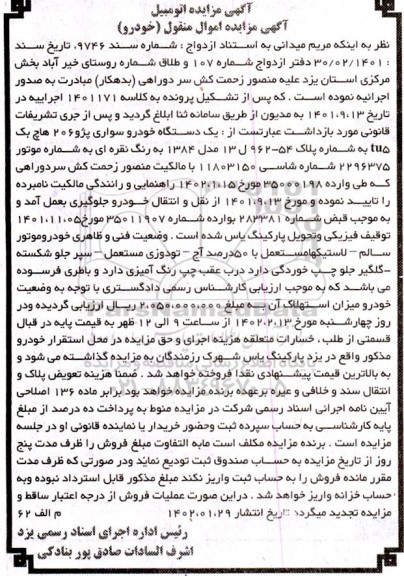 آگهی مزایده اتومبیل
آگهی مزایده اموال منقول (خودرو)
نظر به اینکه مریم میدانی به استناد ازدواج : شماره سند ۹۷۴۶، تاریخ سند
: ۳۰/۰۲/۱۴۰۱ دفتر ازدواج شماره ۱۰۷ و طلاق شماره روستای خیر آباد بخش
مرکزی استان یزد علیه منصور زحمت کش سر دوراهی (بدهکار) مبادرت به صدور
اجرائیه نموده است . که پس از تشکیل پرونده به کلاسه ۱۴۰۱۱۷۱ اجراییه در
تاریخ ۱۴۰۱.۹.۱۳ به مدیون از طریق سامانه ثنا ابلاغ گردید و پس از جری تشریفات
قانونی مورد بازداشت عبارتست از : یک دستگاه خودرو سواری پژو ۲۰۶ هاچ بک
tu۵ به شماره پلاک ۵۴-۹۶۲ ل ۱۳ مدل ۱۳۸۴ به رنگ نقره ای به شماره موتور
۲۲۹۶۳۷۵ شماره شاسی ۱۱۸۰۳۱۵۰ با مالکیت منصور زحمت کش سردوراهی
که طی وارده ۳۵۰۰۰۱۹۸ مورخ ۱۴۰۲.۱.۱۵ راهنمایی و رانندگی مالکیت نامبرده
را تایید نموده و مورخ ۱۴۰۱.۹.۱۳ از نقل و انتقال خودرو جلوگیری بعمل آمد و
به موجب قبض شماره ۲۸۳۳۸۱ بوارده شماره ۳۵۰۱۱۹۰۷ مورخ ۱۴۰۱.۱۱.۰۵
توقیف فیزیکی وتحویل پارکینگ یاس شده است . وضعیت فنی و ظاهری خودروموتور
سالم - لاستیکهامستعمل با ۵۰درصد آج - تودوزی مستعمل - سپر جلو شکسته
-گلگیر جلو چپ خوردگی دارد درب عقب چپ رنگ آمیزی دارد و باطری فرسوده
می باشد که به موجب ارزیابی کارشناس رسمی دادگستری با توجه به وضعیت
خودرو میزان استهلاک آن به مبلغ ۲.۰۵۰.۰۰۰.۰۰۰ ریال ارزیابی گردیده ودر
روز چهارشنبه مورخ ۱۴۰۲.۲.۱۳ از ساعت ۹ الی ۱۲ ظهر به قیمت پایه در قبال
قسمتی از طلب ، خسارات متعلقه هزینه اجرای و حق مزایده در محل استقرار خودرو
مذکور واقع در یزد پارکینگ یاس شهرک رزمندگان به مزایده گذاشته می شود و
به بالاترین قیمت پیشنهادی نقدا فروخته خواهد شد . ضمناً هزینه تعویض پلاک و
انتقال سند و خلافی و غیره برعهده برنده مزایده خواهد بود برابر ماده ۱۳۶ اصلاحی
آیین نامه اجرائی اسناد رسمی شرکت در مزایده منوط به پرداخت ده درصد از مبلغ
پایه کارشناسی به حساب سپرده ثبت وحضور خریدار یا نماینده قانونی او در جلسه
مزایده است . برنده مزایده مکلف است مابه التفاوت مبلغ فروش را ظرف مدت پنج
روز از تاریخ مزایده به حساب صندوق ثبت تودیع نمائد ودر صورتی که ظرف مدت
مقرر مانده فروش را به حساب ثبت واریز نکند مبلغ مذکور قابل استرداد نبوده وبه
حساب خزانه واریز خواهد شد . دراین صورت عملیات فروش از درجه اعتبار ساقط و
مزایده تجدید میگردد تاریخ انتشار ۱۴۰۲.۰۱.۲۹ م الف ۶۲
رئیس اداره اجرای اسناد رسمی یزد
اشرف السادات صادق پور بنادکی